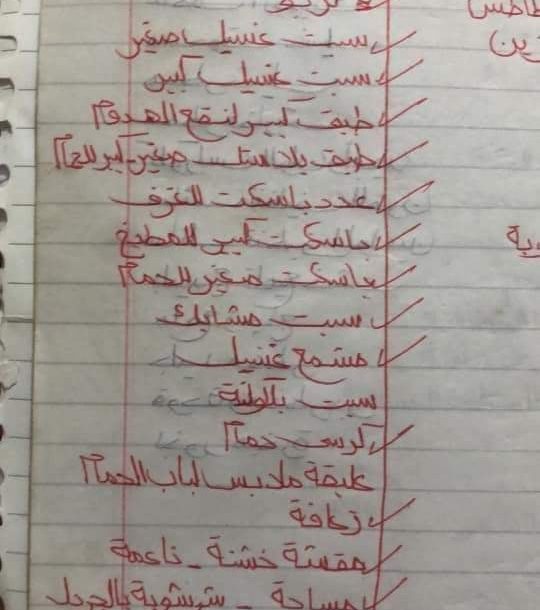 سبت غسيل صغير
سبت غسيل كبير
طبق كبير لنقع الهدوم
طبق بلاستك صغير كبير للحمام
عدد باسكت للغرف
باسكت كبير للمطبخ
باسكت صغير للحمام
سبت مشابك
مشمع غسيل
سبت بطاطس
كرسى حمام
عليقة ملابس لباب الحمام
زعافة
مقشة خشنة - ناعمة
مساحة - شرشوبة بالجردل